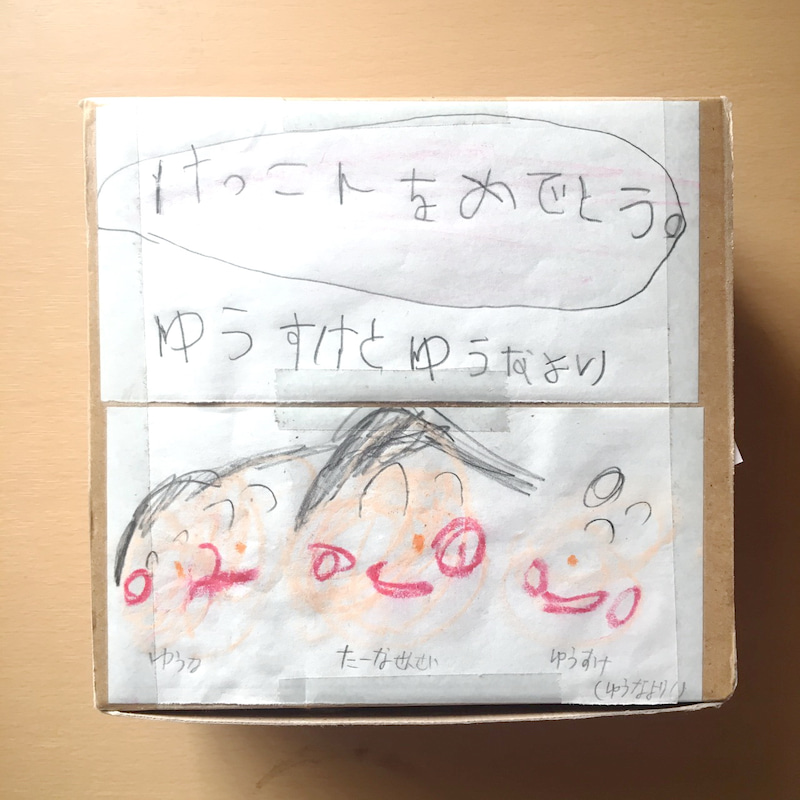 けっこんをめでとう。
ゆうすけとゆうなより
ゆうな
たーなせんせい
ゆうすけ
(ゆうなより)